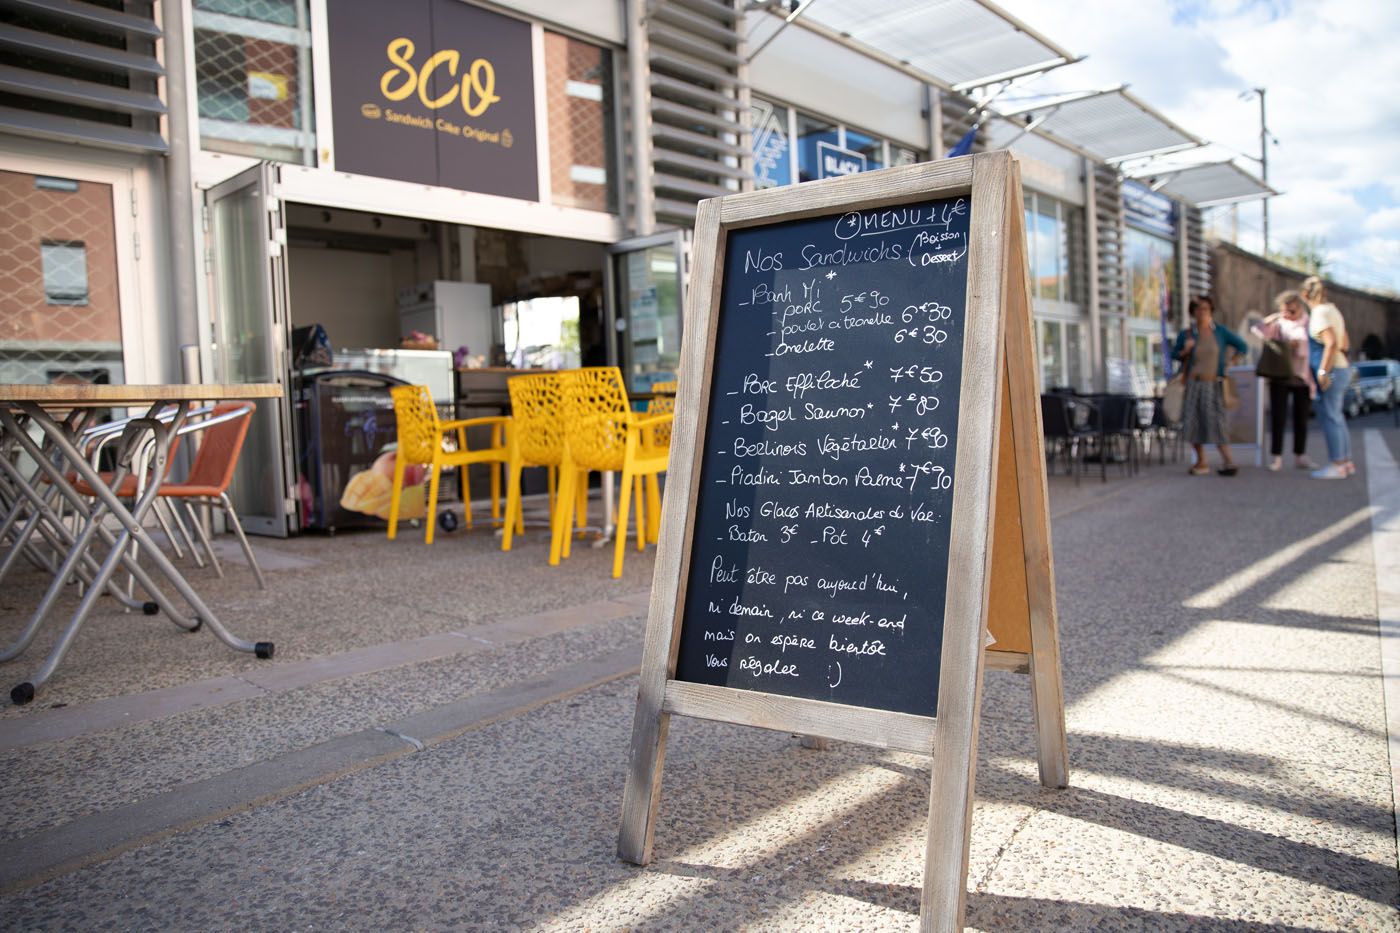 SCO
Sandwich Cake Original
BLACK
* MENU + 4€
Nos Sandwichs: (Boisson
+
Dessert)
- Banh Mi *
- porc 5€90
- poulet citronelle 6€30
- Omelette 6€30
- Porc Effiloché * 7€50
- Bagel Saumon * 7€80
- Berlinois Végétarien * 7€90
- Piadini Jambon Parme * 7€90
Nos Glaces Artisanales du Var:
- Baton 3€ - Pot 4€
Peut être pas aujourd'hui,
ni demain, ni ce week-end
mais on espère bientôt
vous régaler :)